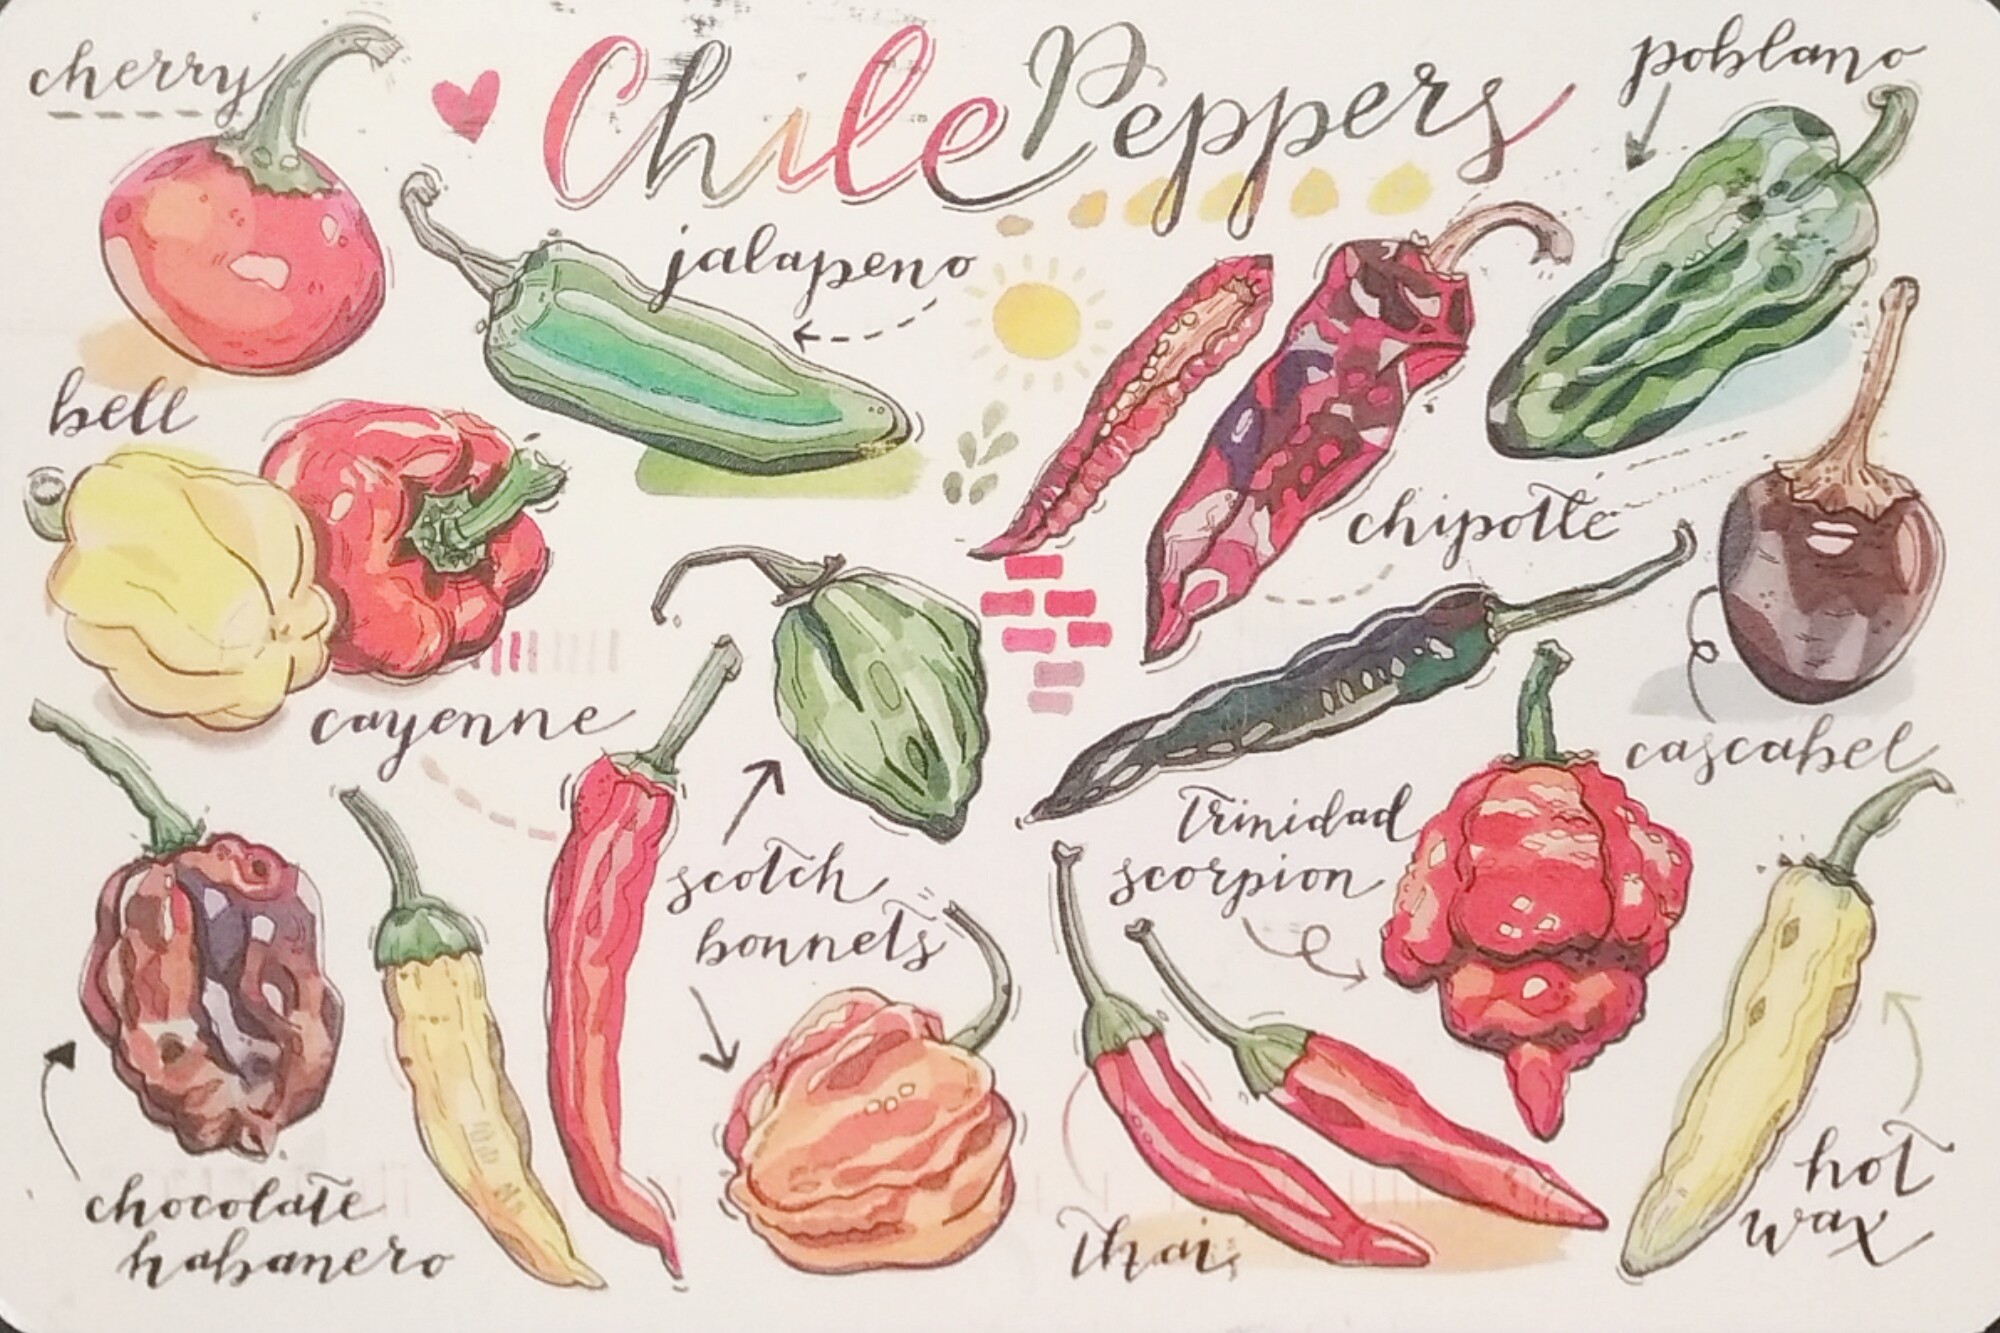 Chile Peppers
cherry
poblano
jalapeno
bell
chipotle
cayenne
cascabel
scotch
bonnets
trinidad
scorpion
chocolate
habanero
thai
hot
wax